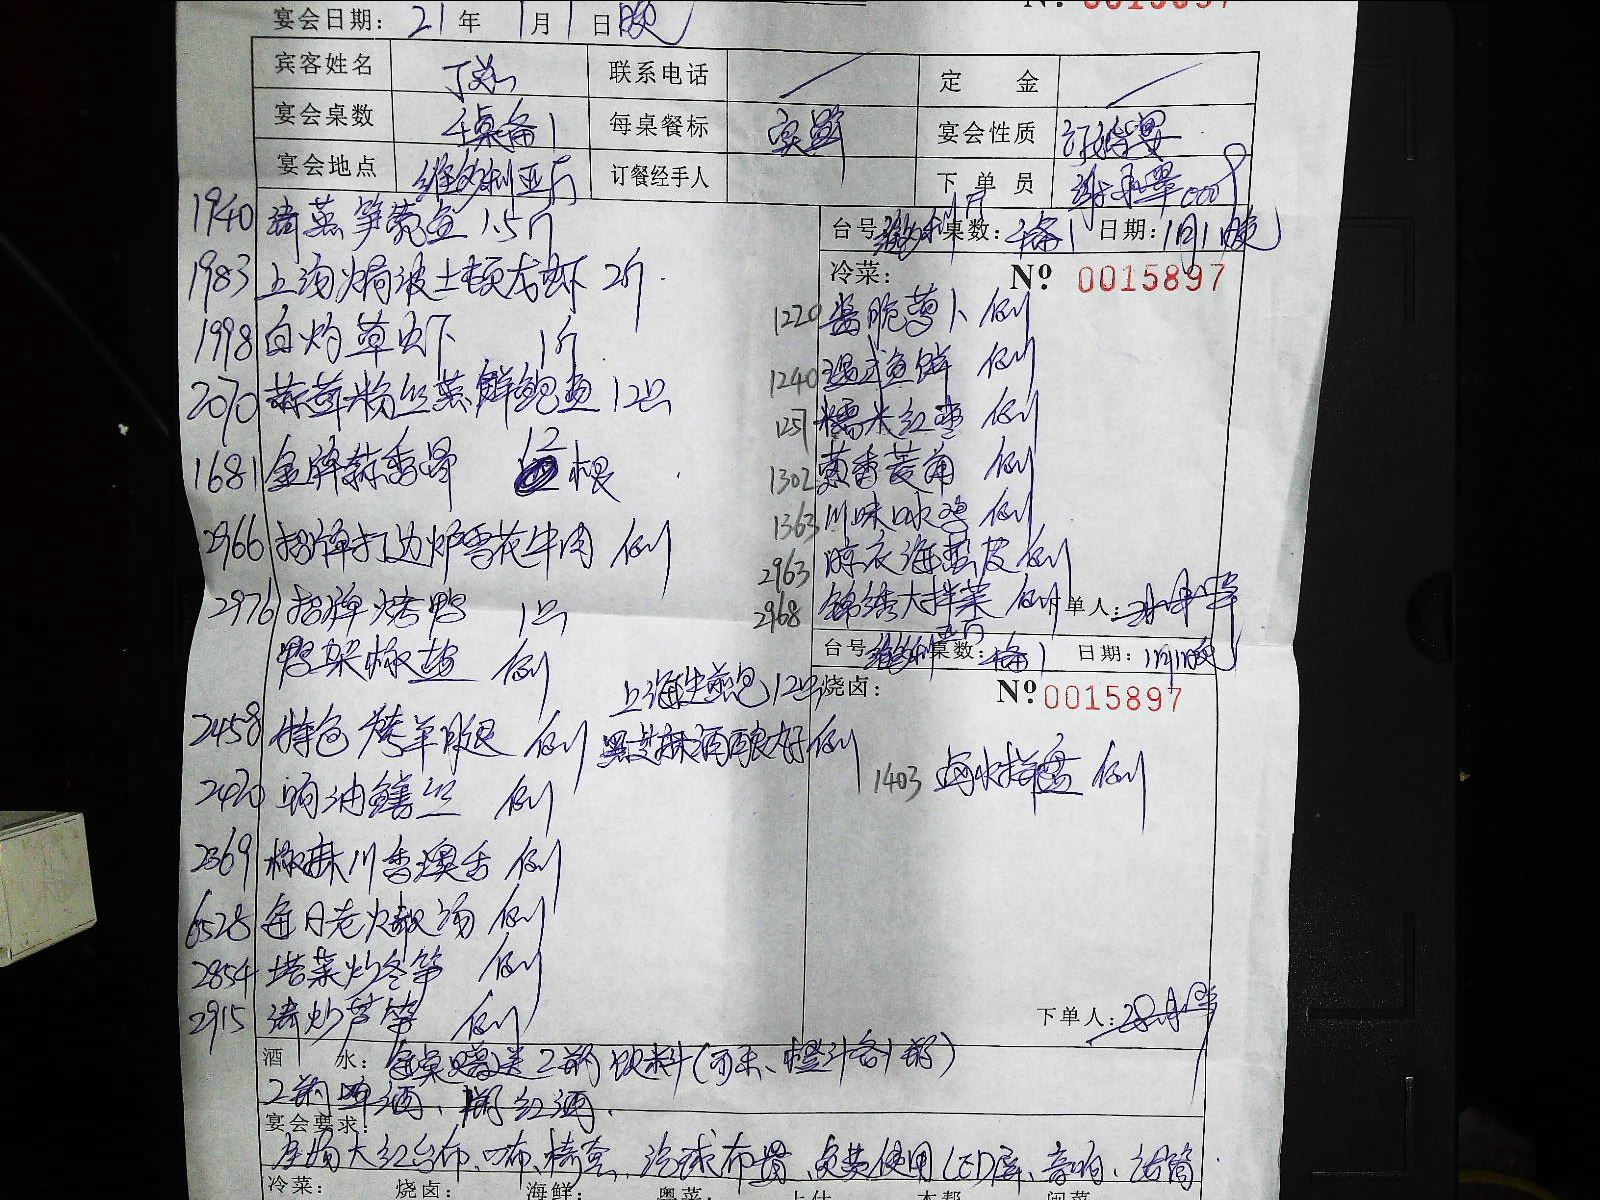 宴会日期: 21年 1月1日晚
宾客姓名 联系电话 / 定 金 /
宴会桌数 桌备1 每桌餐标 实点 宴会性质 订婚宴
宴会地点 维多利亚厅 订餐经手人 下单员
1940 清蒸笋壳鱼 1.5斤
1983 上汤焗波士顿龙虾 2斤
1998 白灼草虾 1斤
2070 蒜蓉粉丝蒸鲜鲍鱼 12只
1681 金牌蒜香骨 12根
2966 招牌打边炉雪花牛肉 例
2976 招牌烤鸭 1只
鸭架椒盐 例
上海生煎包 12只
2458 特色烤羊腿 例
黑芝麻酒酿 例
2420 响油鳝丝 例
2369 椒麻川香 例
6528 每日老火靓汤 例
2854 塔菜炒冬笋 例
2915 清炒芦笋 例
台号 维多利 桌数: 备1 日期: 1月1晚
冷菜: Nº 0015897
1220 酱脆萝卜 例
1240 鱼鲜 例
1251 糯米红枣 例
1302 葱香菱角 例
1363 川味口水鸡 例
2963 海蜇皮 例
2968 锦绣大拌菜 例 单人:
台号 维多利亚厅 桌数: 备1 日期: 1月1晚
烧卤: Nº 0015897
1403 卤水拼盘 例
下单人:
酒 水: 每桌赠送2瓶饮料(可乐、橙汁各1瓶)
2瓶啤酒、1瓶红酒.
宴会要求:
大红台布、口布、椅套、汽球布置、免费使用LED屏、音响、话筒
冷菜: 烧卤: 海鲜: 粤菜: 上什 本帮 闽菜